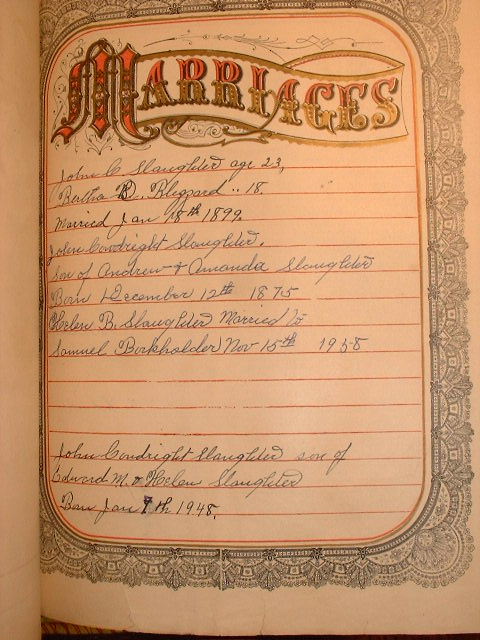 MARRIAGES
John C Slaughter age 23,
Bertha B. Blizzard .. 18.
Married Jan 18th 1899.
John Condright Slaughter.
son of Andrew & Amanda Slaughter
Born December 12th 1875
Helen B. Slaughter Married to
Samuel Borkholder Nov 15th 1958
John Condright Slaughter son of
Edward M. & Helen Slaughter
Born Jan 7th 1948.